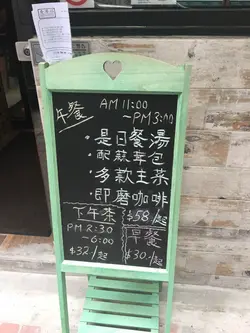 午餐
AM 11:00
~PM 3:00
·是日餐湯
·配蒜茸包
·多款主菜
·即磨咖啡
$58/起
下午茶
PM 2:30
-6:00
$32/起
早餐
$30/起